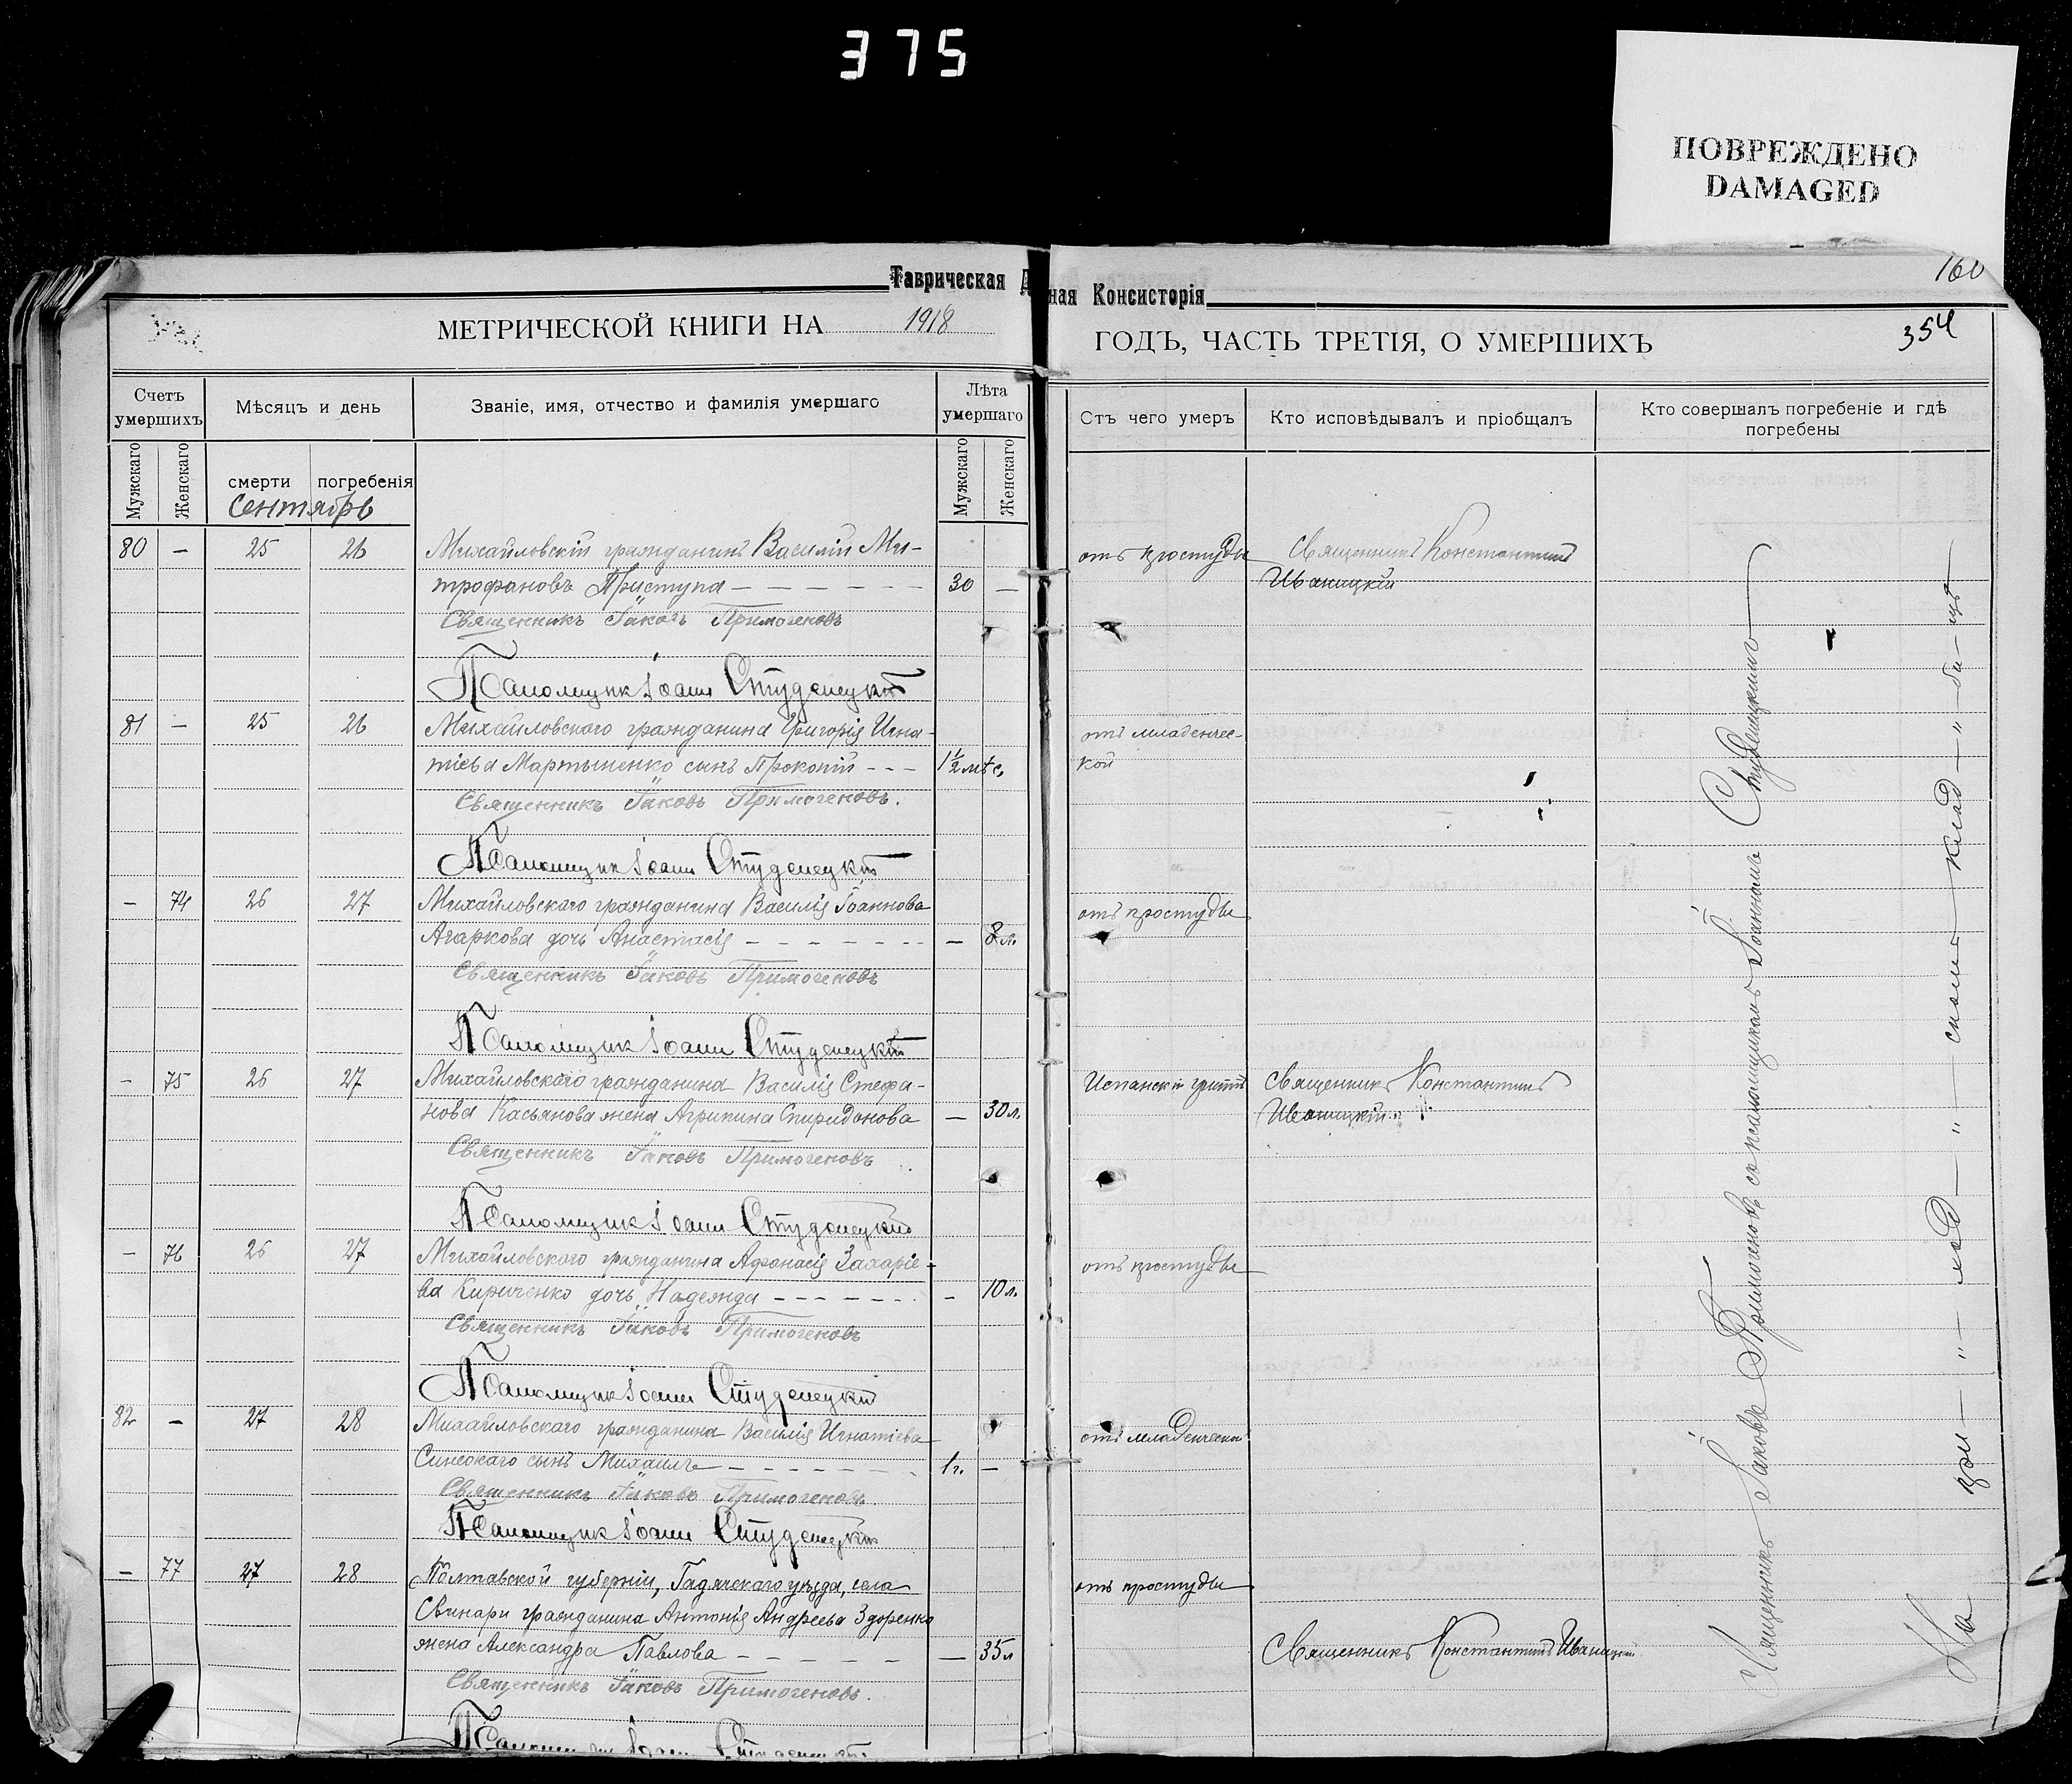 375
ПОВРЕЖДЕНО
DAMAGED
Таврическая Д
ная Консисторія
160
МЕТРИЧЕСКОЙ КНИГИ НА 1918
ГОДЪ, ЧАСТЬ ТРЕТІЯ, О УМЕРШИХЪ
354
Счетъ умершихъ
Мѣсяцъ и день
Званіе, имя, отчество и фамилія умершаго
Лѣта умершаго
Мужскаго
Женскаго
смерти
погребенія
Мужскаго
Женскаго
Отъ чего умеръ
Кто исповѣдывалъ и пріобщалъ
Кто совершалъ погребеніе и гдѣ
погребены
Сентябрь
80 – 25 26 Михайловскій гражданинъ Василій Ми-
трофановъ Приступа – – – – – – 30 –
отъ простуды
Священникъ Константинъ
Иваницкій
Священникъ Іаковъ Примогеновъ
Псаломщик Іоанн Студенецкій
81 – 25 26 Михайловского гражданина Григорія Игна-
тіева Мартыненко сынъ Прокопій – – – 1½ мѣс.
отъ младенчес-
кой
Священникъ Іаковъ Примогеновъ.
Псаломщик Іоанн Студенецкій
– 74 26 27 Михайловского гражданина Василія Іоаннова
Агаркова дочь Анастасія – – – – – – – – 8 л.
отъ простуды
Священникъ Іаковъ Примогеновъ
Псаломщик Іоанн Студенецкій
– 75 26 27 Михайловскаго гражданина Василія Стефа-
нова Касьянова жена Агрипина Спиридонова – 30 л.
Испанскій гриппъ
Священникъ Константинъ
Иваницкій
Священникъ Іаковъ Примогеновъ
Псаломщик Іоанн Студенецкій
– 76 26 27 Михайловского гражданина Афанасія Захаріе-
ва Кириченко дочь Надежда – – – – – – – 10 л.
отъ простуды
Священникъ Іаковъ Примогеновъ
Псаломщик Іоанн Студенецкій
82 – 27 28 Михайловскаго гражданина Василія Игнатіева
Синеокаго сынъ Михаилъ – – – – – – 1 г. –
отъ младенческой
Священникъ Іаковъ Примогеновъ
Псаломщик Іоанн Студенецкій
– 77 27 28 Полтавской губерніи, Гадячскаго уѣзда, села
Свинари гражданина Антонія Андреева Здоренко
жена Александра Павлова – – – – – – 35 л
отъ простуды
Священникъ Константинъ Иваницкій
Священникъ Іаковъ Примогеновъ.
Псаломщик Іоанн Студенецкій
Священникъ Іаковъ Примогеновъ съ псаломщикомъ Іоанномъ Студенецкимъ
На при – " – ход – " – скомъ – клад – " – би – щѣ